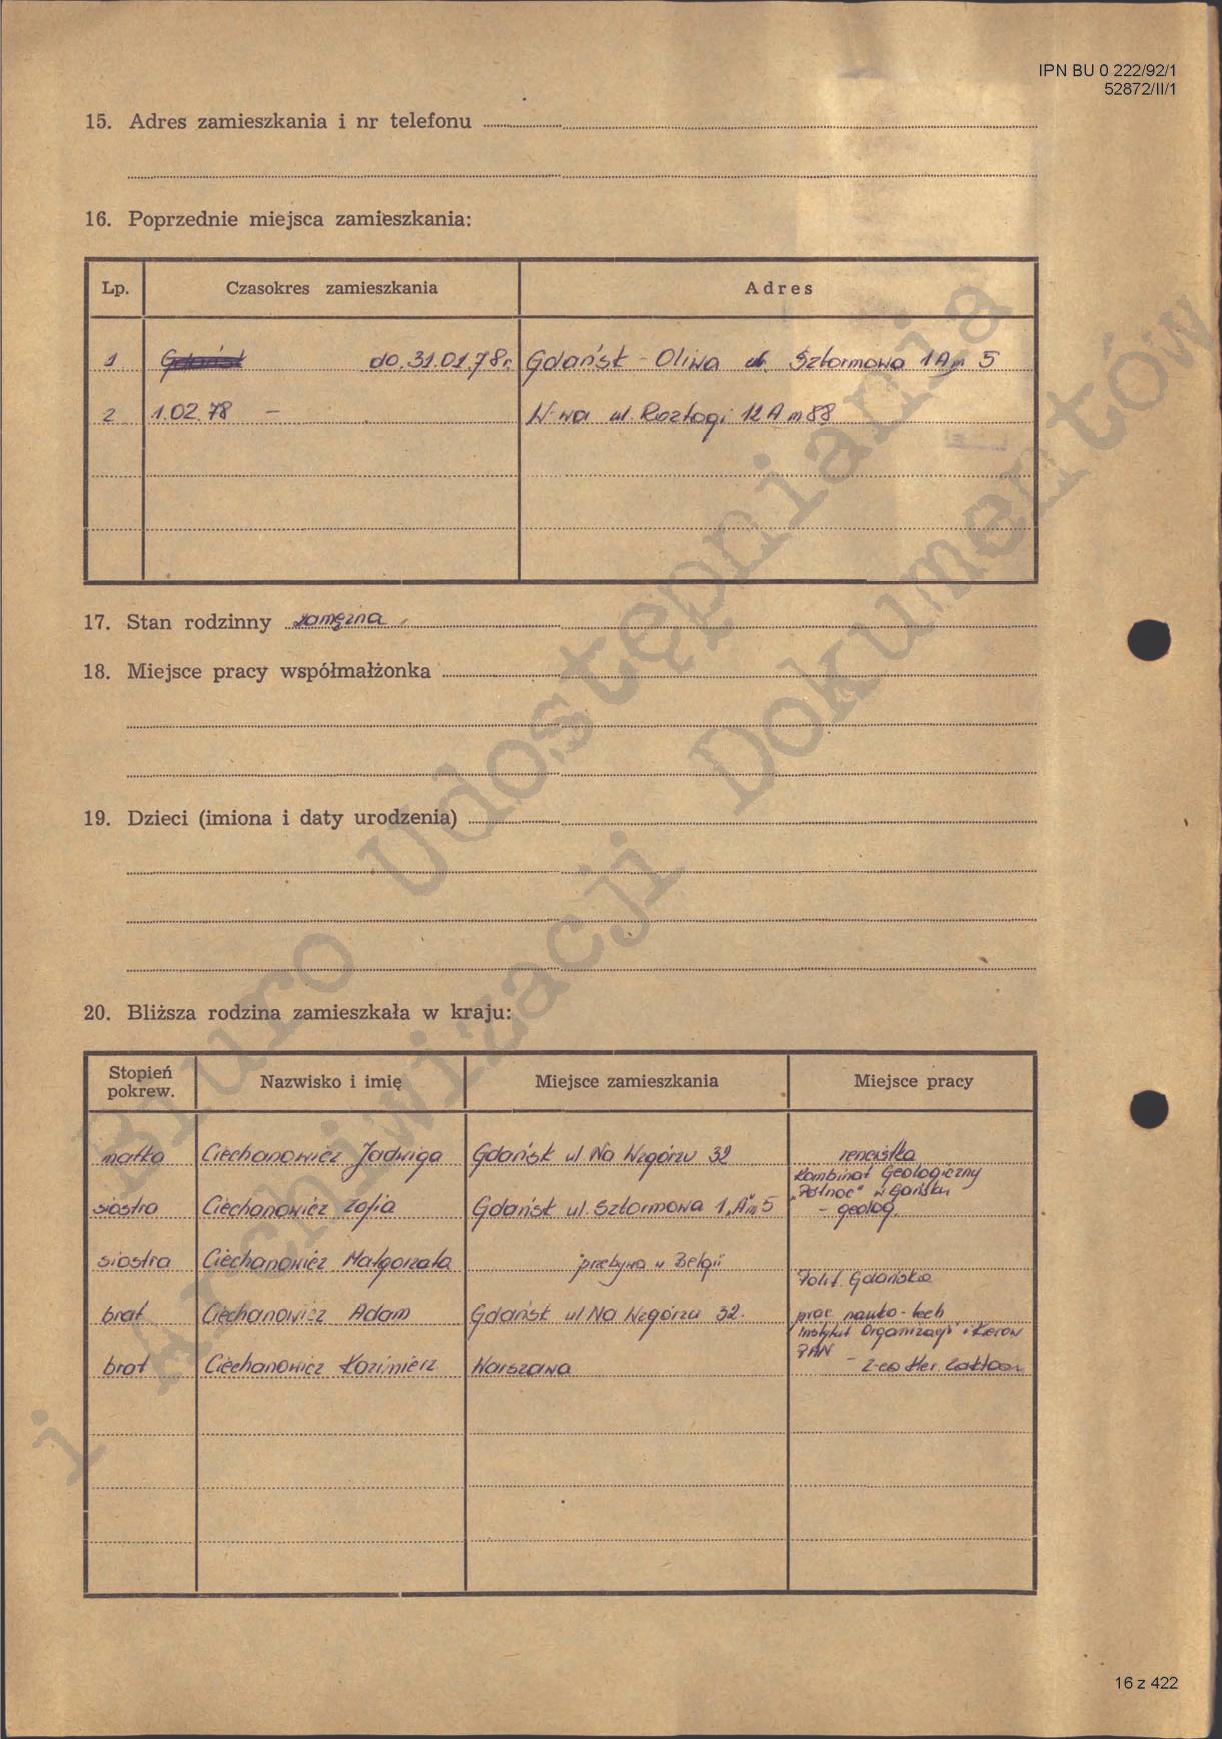 IPN BU 0 222/92/1
52872/II/1
15. Adres zamieszkania i nr telefonu
16. Poprzednie miejsca zamieszkania:
Lp. Czasokres zamieszkania Adres
1 Gdańsk do 31.01.78r. Gdańsk - Oliwa ul. Sztormowa 1A m 5
2 1.02.78 - W-wa ul. Rozłogi 12A m 88
17. Stan rodzinny zamężna
18. Miejsce pracy współmałżonka
19. Dzieci (imiona i daty urodzenia)
20. Bliższa rodzina zamieszkała w kraju:
Stopień pokrew. Nazwisko i imię Miejsce zamieszkania Miejsce pracy
matka Ciechanowicz Jadwiga Gdańsk ul Na Wzgórzu 32 rencistka
Kombinat Geologiczny
"Północ" w Gdańsku
siostra Ciechanowicz Zofia Gdańsk ul. Sztormowa 1 "A" m 5 - geolog
siostra Ciechanowicz Małgorzata przebywa w Belgii
Polit. Gdańska
brat Ciechanowicz Adam Gdańsk ul Na Wzgórzu 32. prac. nauko-tech
Instytut Organizacji i Kierow
PAN
brat Ciechanowicz Kazimierz Warszawa - Z-ca Kier.
Biuro Udostępniania
i Archiwizacji Dokumentów
16 z 422